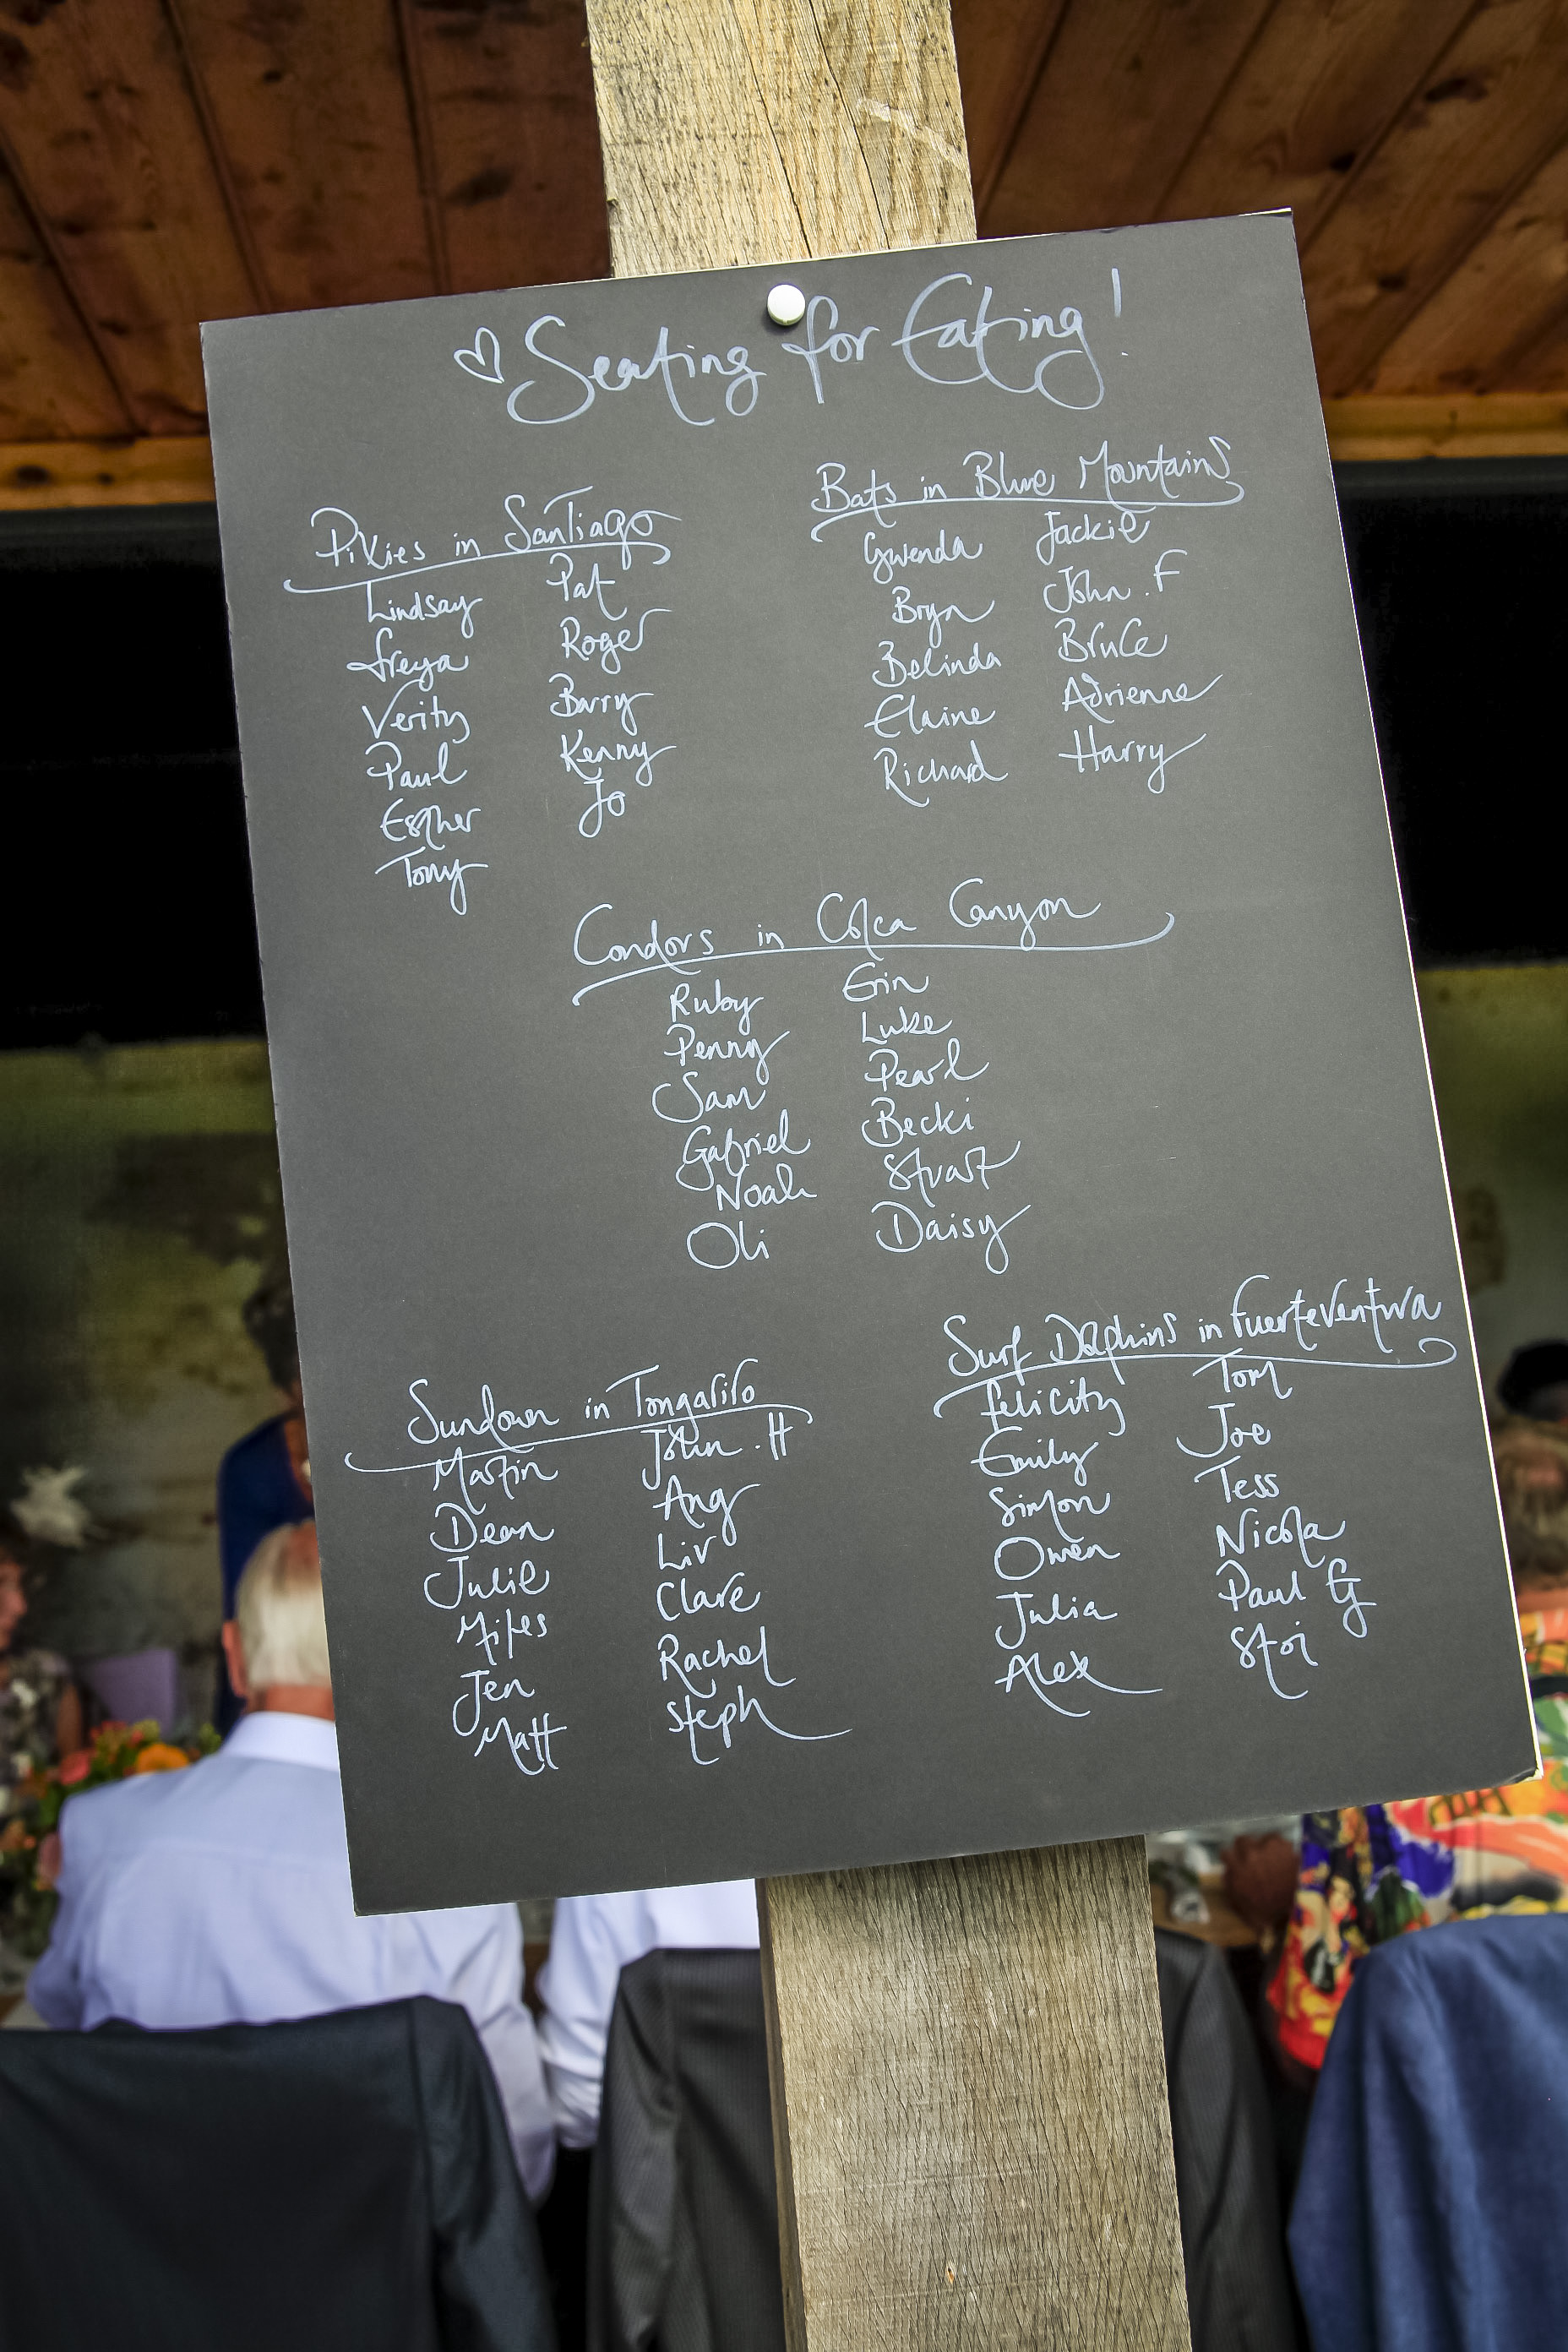 ♡ Seating for Eating!
Pixies in Santiago
Lindsay Pat
Freya Roger
Verity Barry
Paul Kenny
Esther Jo
Tony
Bats in Blue Mountains
Gwenda Jackie
Bryn John.F
Belinda Bruce
Elaine Adrienne
Richard Harry
Condors in Colca Canyon
Ruby Erin
Penny Luke
Sam Pearl
Gabriel Becki
Noah Stuart
Oli Daisy
Sundown in Tongariro
Martin John.H
Dean Ang
Julie Liv
Miles Clare
Jen Rachel
Matt Steph
Surf Dolphins in Fuerteventura
Felicity Tom
Emily Joe
Simon Tess
Owen Nicola
Julia Paul G
Alex Stoi